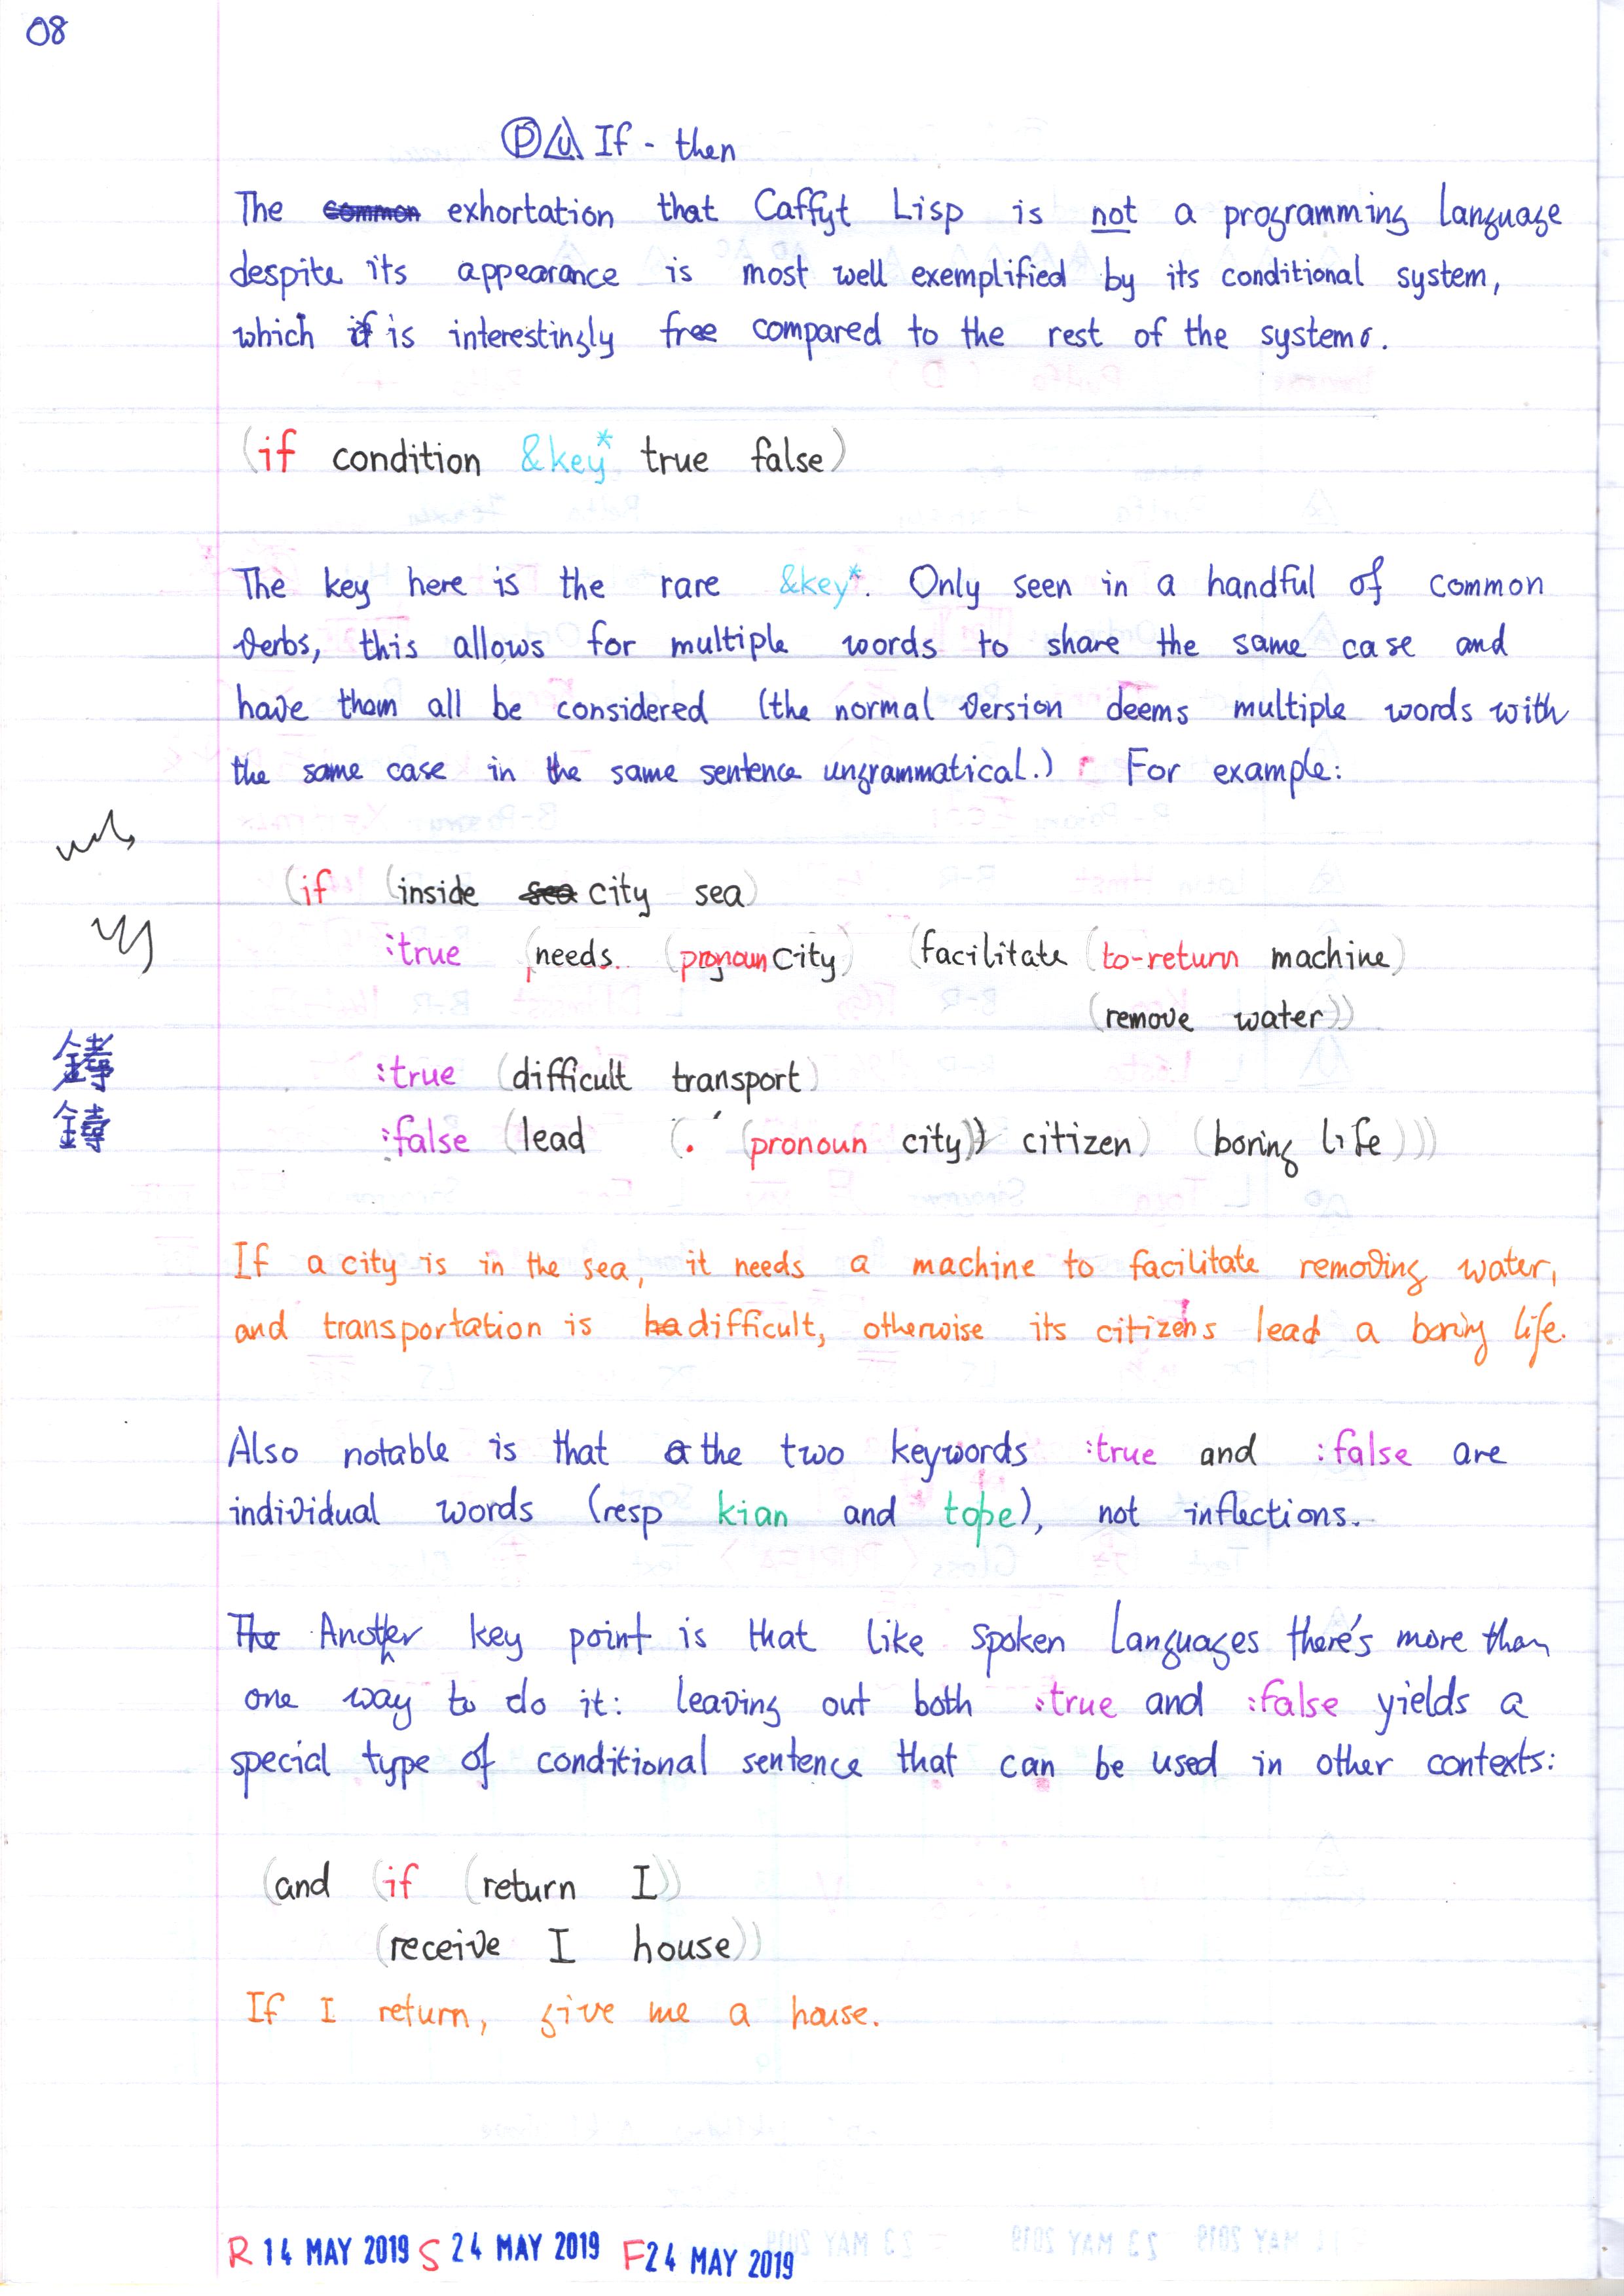 08
Ⓟ If - then
The common exhortation that Caffyt Lisp is not a programming language
despite its appearance is most well exemplified by its conditional system,
which if is interestingly free compared to the rest of the systems.
(if condition &key* true false)
The key here is the rare &key*. Only seen in a handful of common
verbs, this allows for multiple words to share the same case and
have them all be considered (the normal version deems multiple words with
the same case in the same sentence ungrammatical.) For example:
(if (inside sea city sea)
:true (needs (pronoun city) (facilitate (to-return machine)
(remove water))
:true (difficult transport)
:false (lead (. (pronoun city) citizen) (boring life)))
If a city is in the sea, it needs a machine to facilitate removing water,
and transportation is ba difficult, otherwise its citizens lead a boring life.
Also notable is that a the two keywords :true and :false are
individual words (resp kian and tope), not inflections.
The Another key point is that like spoken languages there's more than
one way to do it: leaving out both :true and :false yields a
special type of conditional sentence that can be used in other contexts:
(and (if (return I))
(receive I house))
If I return, give me a house.
R 14 MAY 2019 S 24 MAY 2019 F 24 MAY 2019